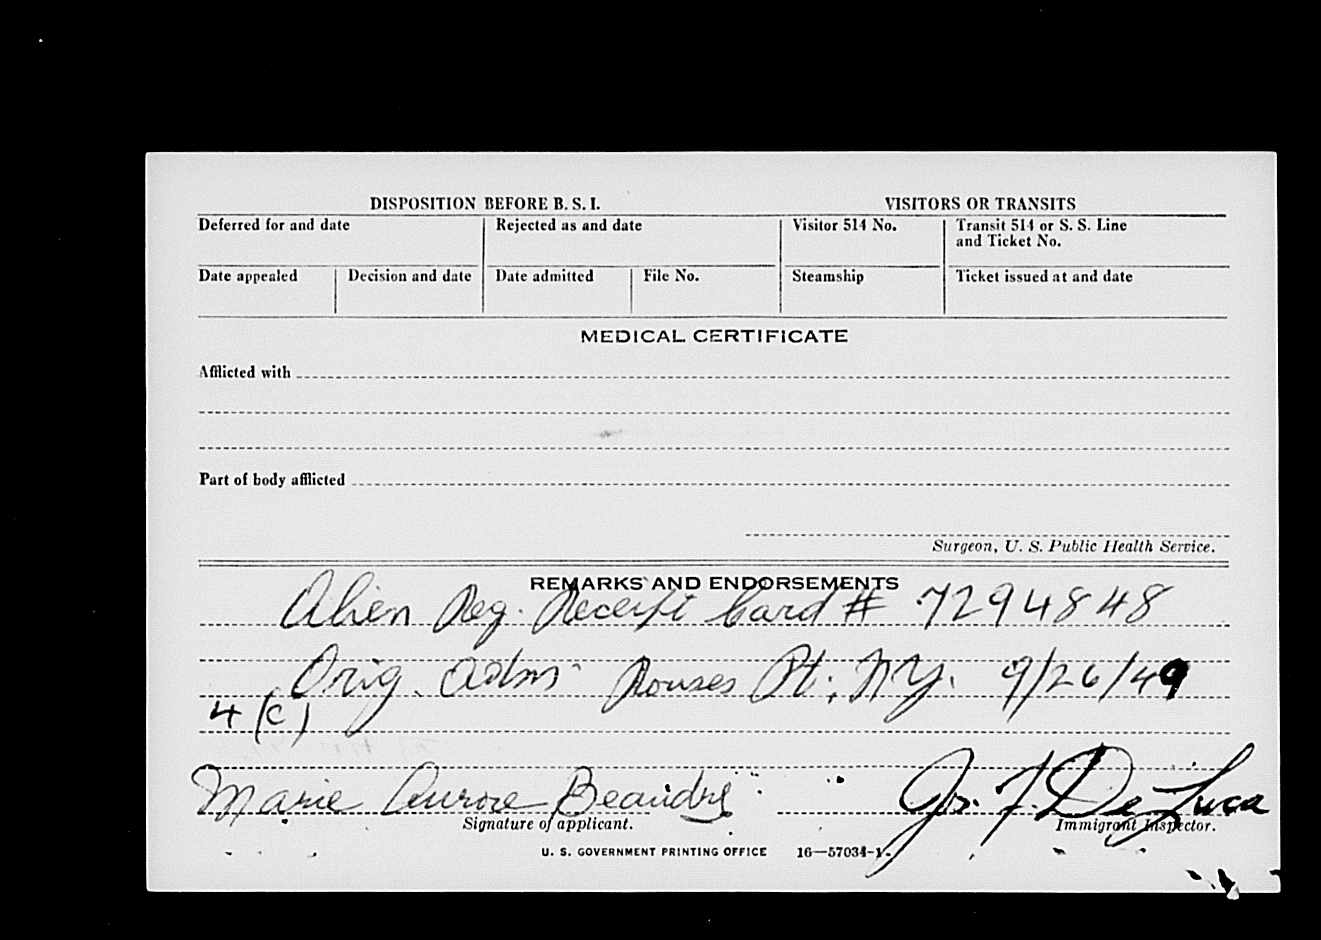 DISPOSITION BEFORE B. S. I. VISITORS OR TRANSITS
Deferred for and date Rejected as and date Visitor 514 No. Transit 514 or S. S. Line and Ticket No.
Date appealed Decision and date Date admitted File No. Steamship Ticket issued at and date
MEDICAL CERTIFICATE
Afflicted with
Part of body afflicted
Surgeon, U. S. Public Health Service.
REMARKS AND ENDORSEMENTS
Alien Reg. Receipt Card # 7294848
Orig. Adm Rouses Pt., N.Y. 9/26/49
4 (c)
Marie Aurore Beaudry Jos. F. De Luca
Signature of applicant. Immigrant Inspector.
U. S. GOVERNMENT PRINTING OFFICE 16—57034-1